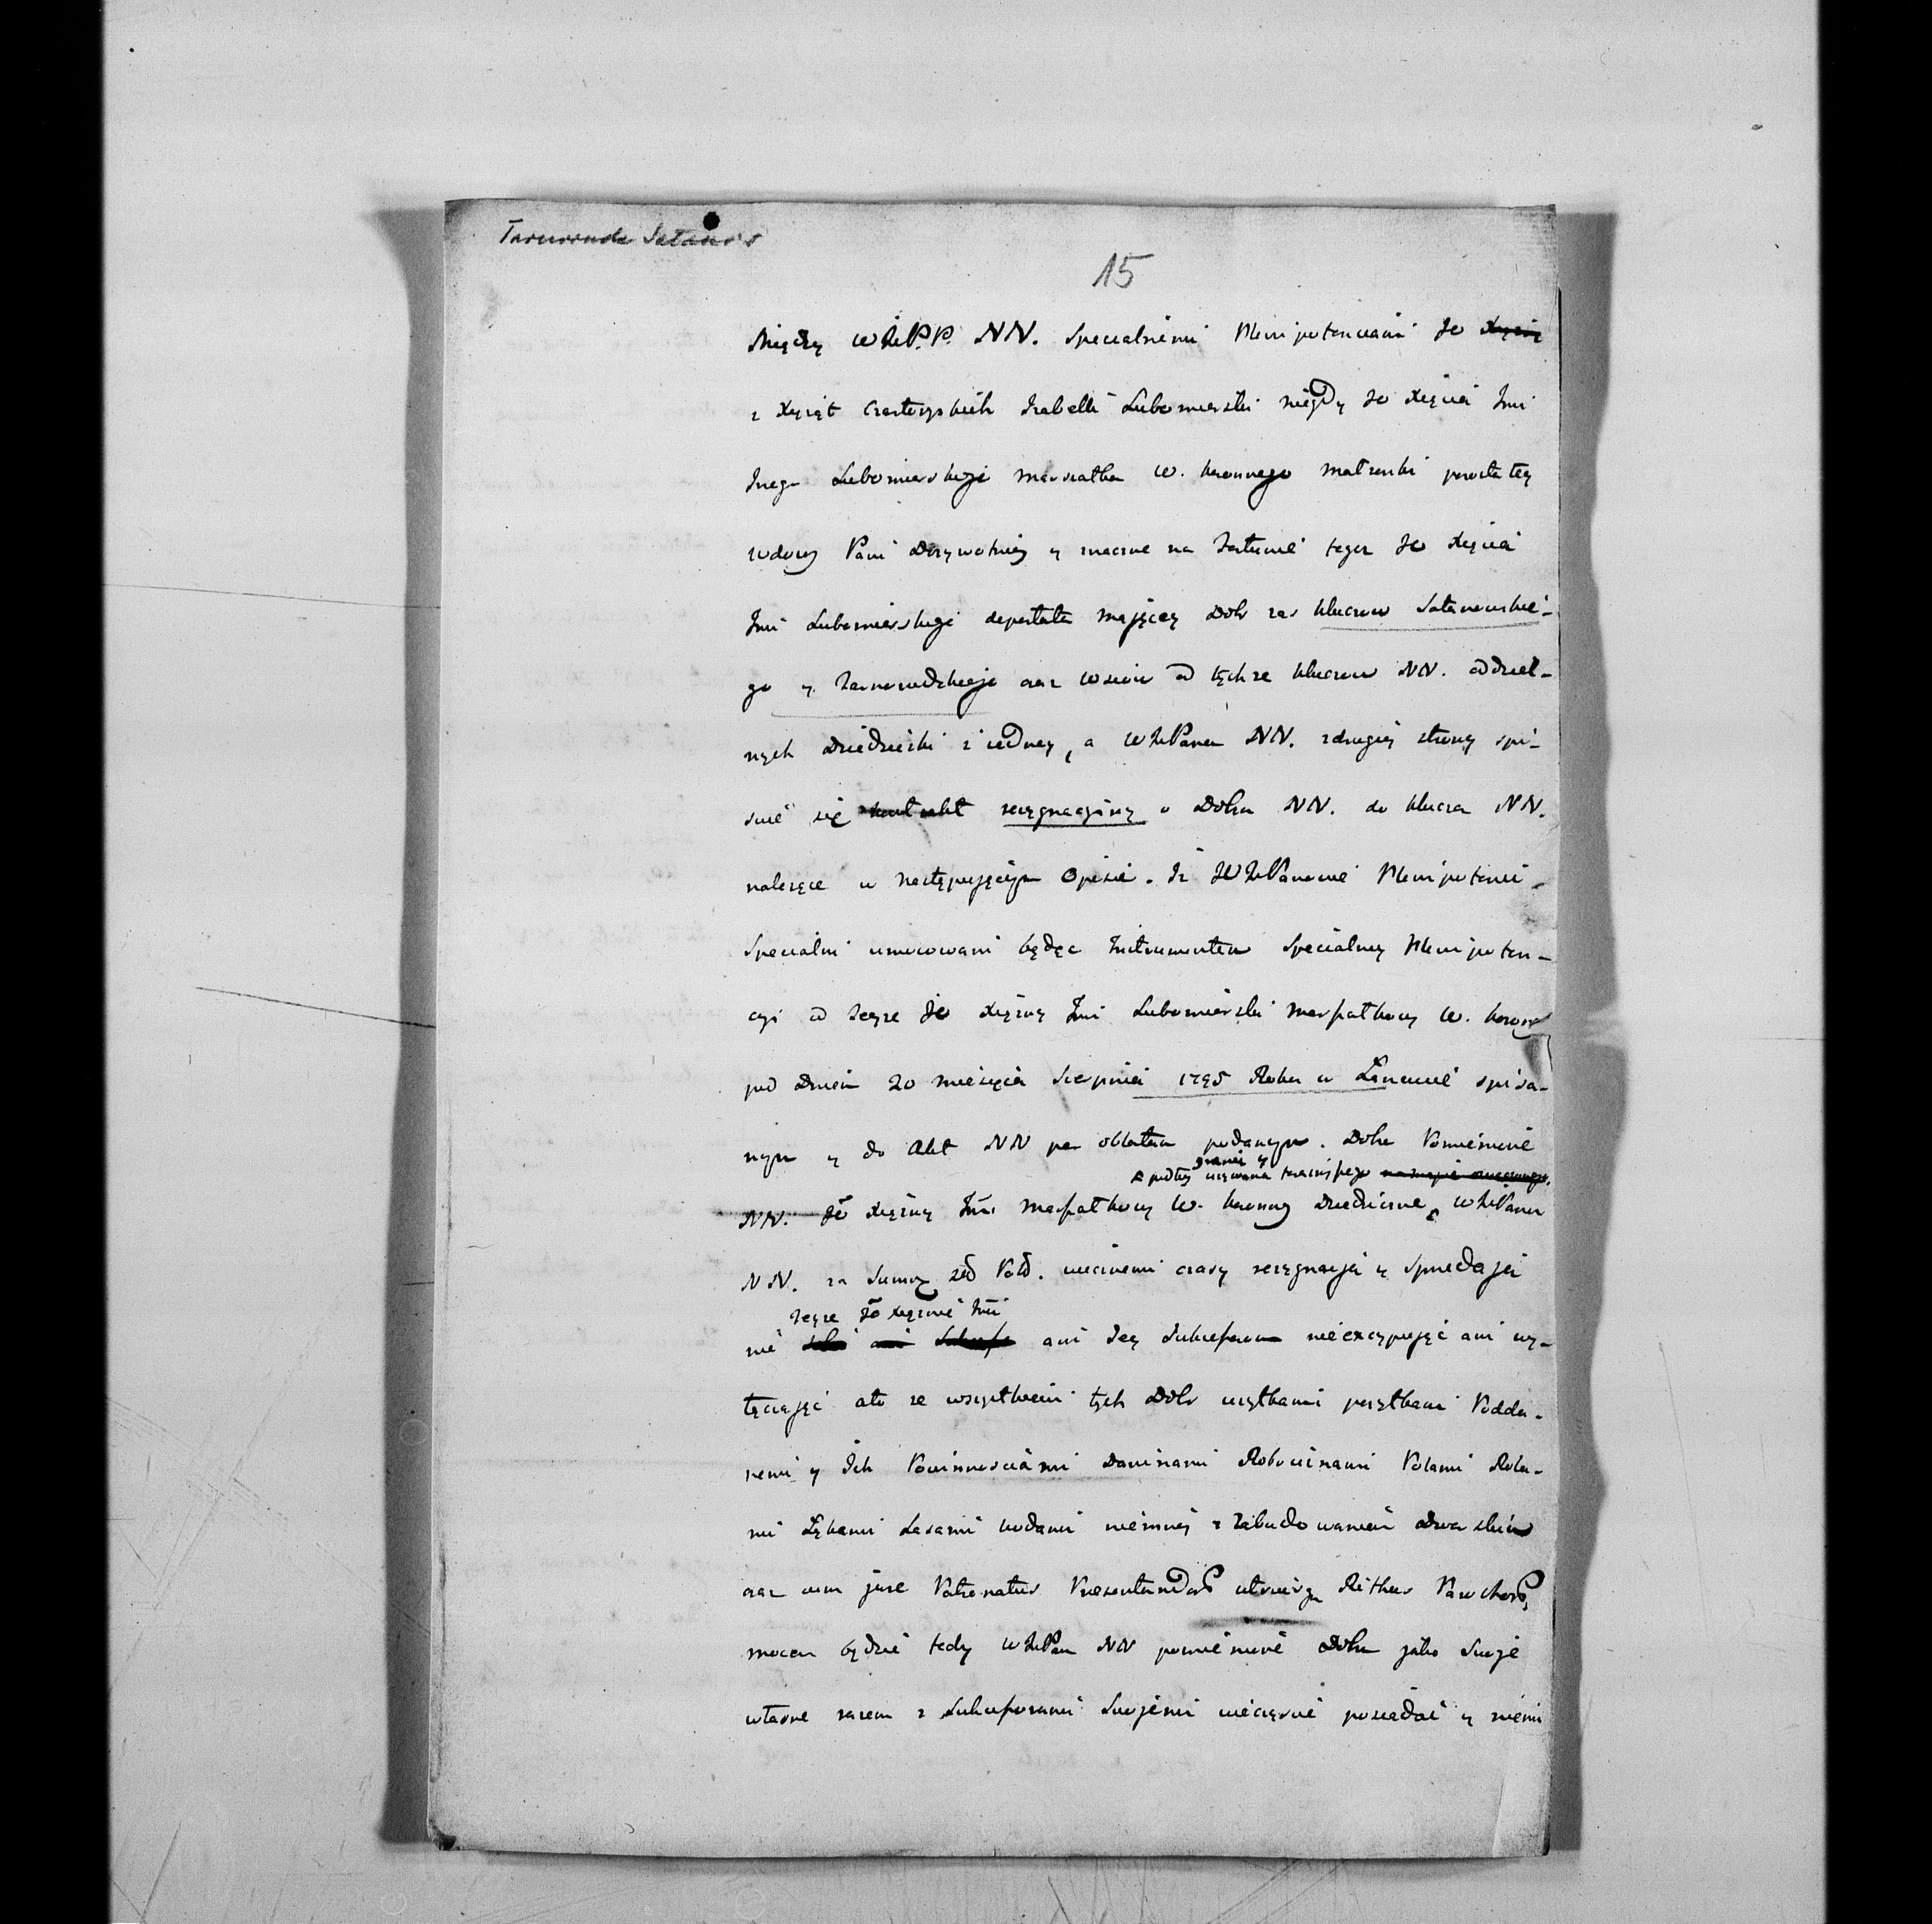 Tarnoruda Satanów
15
Między WJchP.P. NN. Specialnemi Plenipotencami JO
z Xiąząt Czartoryskich Izabelli Lubomirski niegdy JO Xięcia Imci
Lubomirskiego Marszałka W. koronnego małżonki pozostałey
wdowy Pani Dożywotniey y na fortunie tegoz JO Xięcia
Imci Lubomirskiego mającey Dobr zas kluczow Satanowskie-
go y Tarnorudzkiego oraz wsiow od tychze kluczow NN. oddziel-
nych Dziedziczki z iedney, a WJchPanem NN. zdrugiey strony spi-
suie się kontrakt rezygnacyiny o Dobra NN. do klucza NN.
nalezące w następującym Opisie. Iz WJchPanowie Plenipotenci
Specialni umocowani będąc Instrumentem Specialney Plenipoten-
cyi od teyze JO Xięzny Imci Lubomirski Marszałkowy W. korony
pod Dniem 20 miesięca Sierpnia 1795 Roku w Łancucie spisa-
nym y do Akt NN per oblatam podanym. Dobra Pomienione
podług granic y używania teraznieyszego
NN. JO Xięzny Imci Marszałkowy W. koronny Dziedziczne, WJchPanu
NN. za Summę Zło Pols. wiecznemi czasy rezygnują y Sprzedają
teyze JO Xięznie Imci
nic ani Jey Sukcessorom nieexcypując ani wy-
łączając ale ze wszystkiemi tych Dobr użytkami pożytkami Podda-
nemi y Ich Powinnosciami Daninami Robociznami Polami Rola-
mi Łąkami Lasami wodami niemniey z Zabudowaniem Dworskim
oraz cum jure Patronatus Praesentandorum utriusque Rithus Parochorum,
mocen będzie tedy WJchPan NN pomienione Dobra jako Swoje
własne razem z Sukcessorami Swojemi wiecznie posiadać y niemi